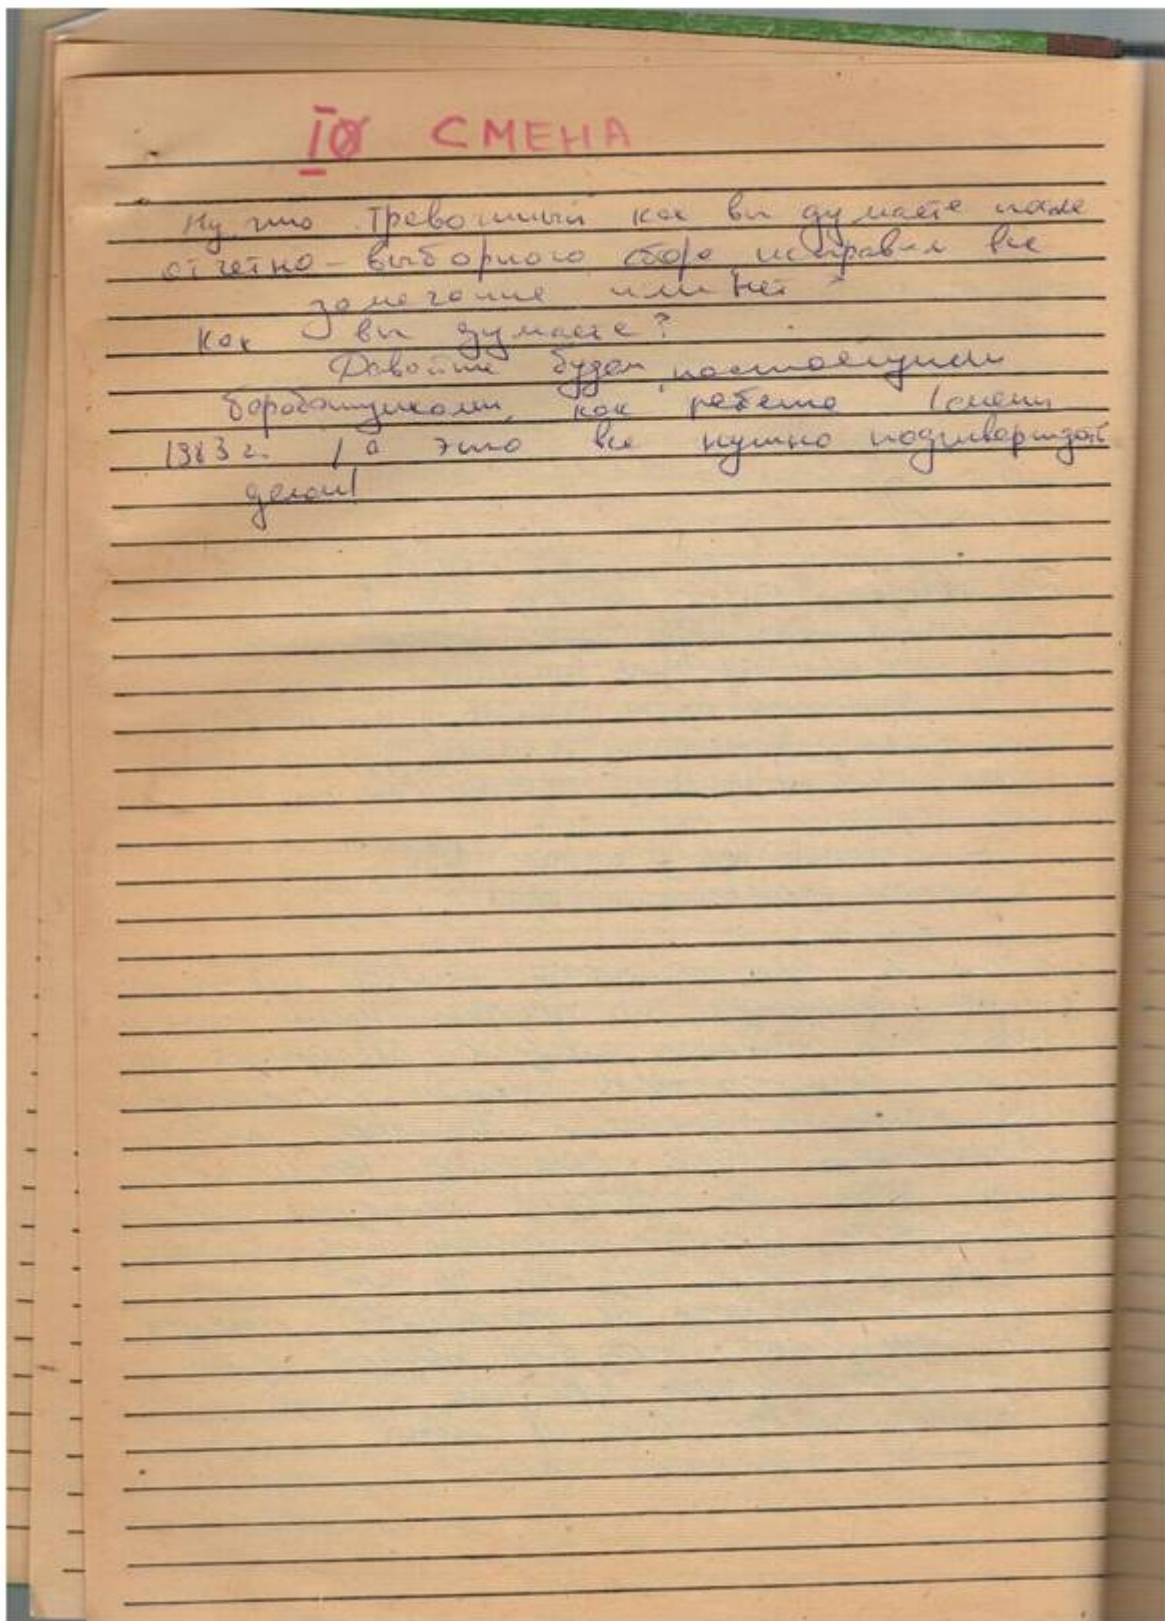 I СМЕНА
Ну что Тревожный как вы думаете после
отчетно-выборного сбора исправил все
замечание или нет?
Как вы думаете?
Давайте будем настоящими
барабанщиками, как ребята 1 смены
1983 г. , а это все нужно подтверждать
делом!